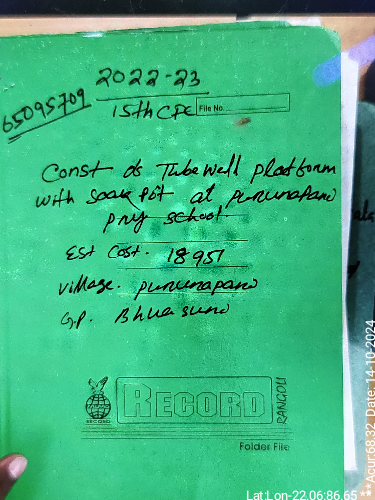 2022-23
65095709
15th CFC File No.
Const of Tubewell platform
with soak pit at Purunapani
pry school.
Est Cost. 18951
village. purunapani
G.P. Bhuasuni
RECORD RANGOLI
RECORD
Folder File
Lat Lon-22.06:86.65
***Acur:6832, Date: 14-10.2024